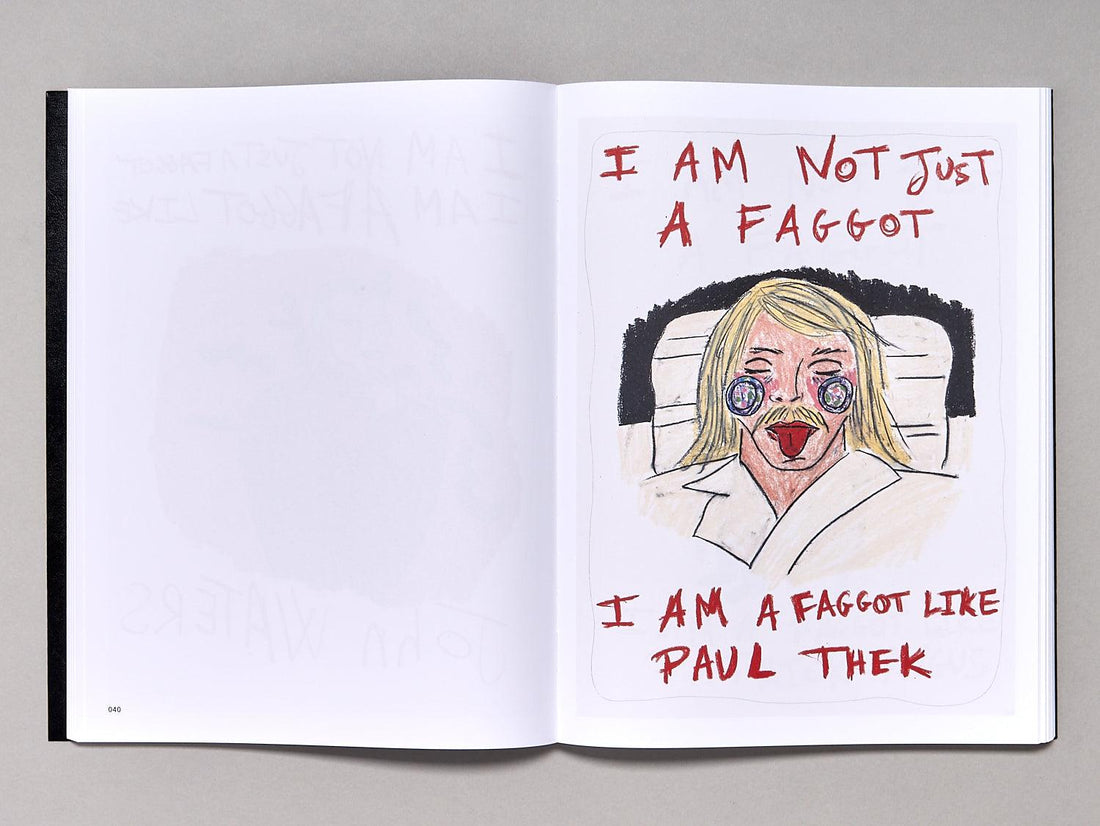 040
I AM NOT JUST
A FAGGOT
I AM A FAGGOT LIKE
PAUL THEK